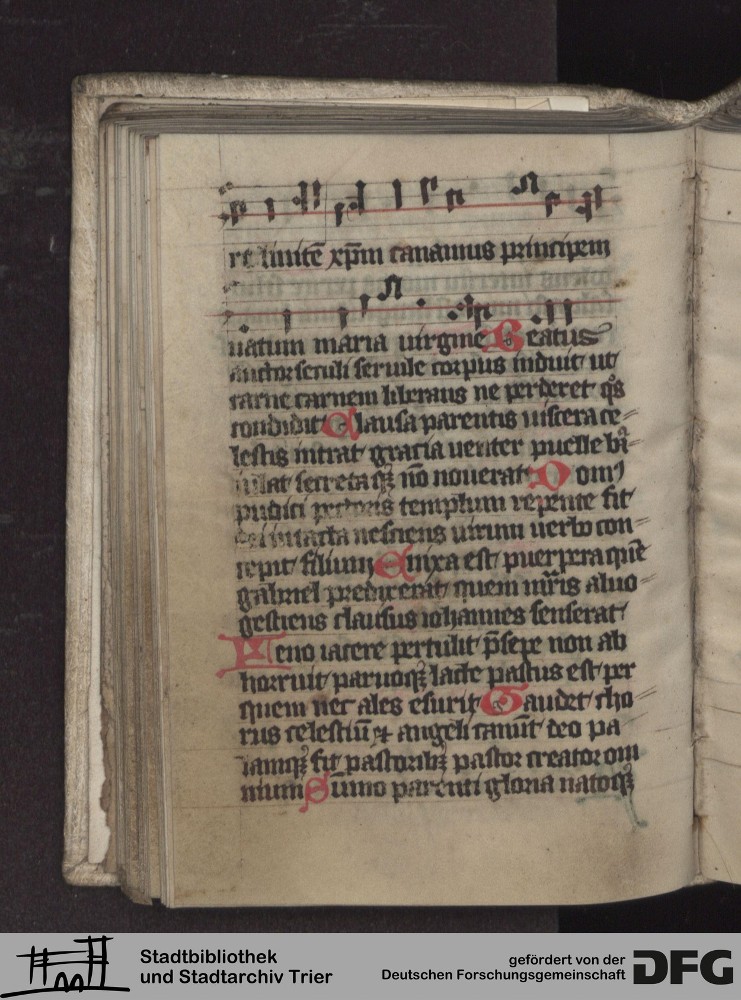 re limitē xp̄m canamus principem
natum maria uirgine Beatus
auctor seculi seruile corpus induit ut
carne carnem liberans ne perderet qͦs
condidit Clausa parentis uiscera ce-
lestis intrat gracia uenter puelle ba-
iulat secreta qꝫ nō nouerat Domꝰ
pudici pectoris templum repente fit
intacta nesciens uirum uerbo con-
cepit filium Enixa est puerpera quē
gabriel predixerat quem mr̄is aluo
gestiens clausus iohannes senserat
Feno iacere pertulit p̄sepe non ab
horruit paruoqꝫ lacte pastus est per
quem nec ales esurit Gaudet cho-
rus celestiū ⁊ angeli canūt deo pa
lamqꝫ fit pastoribꝫ pastor creator om
nium Sūmo parenti gloria natoqꝫ
Stadtbibliothek
und Stadtarchiv Trier
gefördert von der
Deutschen Forschungsgemeinschaft
DFG